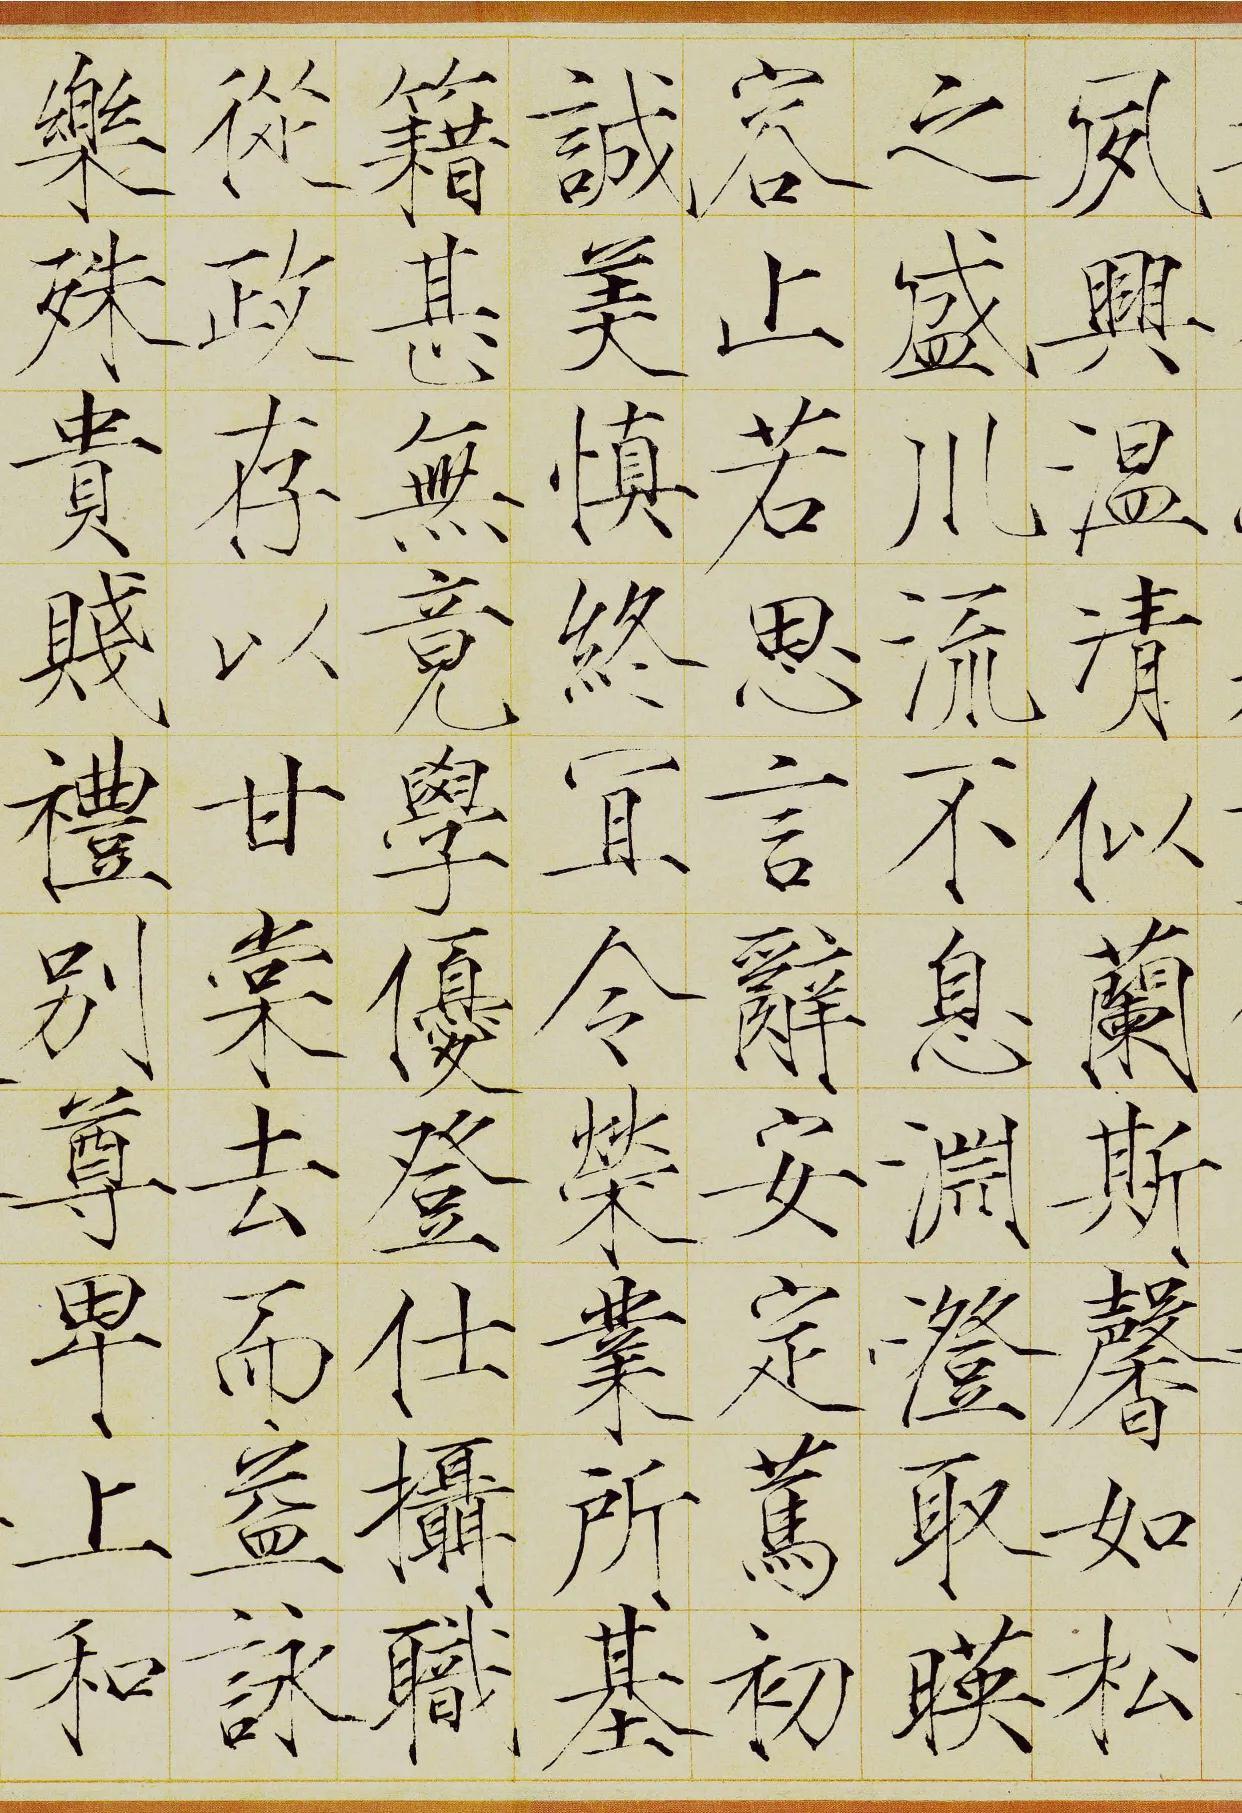 夙興溫凊似蘭斯馨如松
之盛川流不息淵澄取暎
容止若思言辭安定篤初
誠美慎終宜令榮業所基
籍甚無竟學優登仕攝職
從政存以甘棠去而益詠
樂殊貴賤禮別尊卑上和